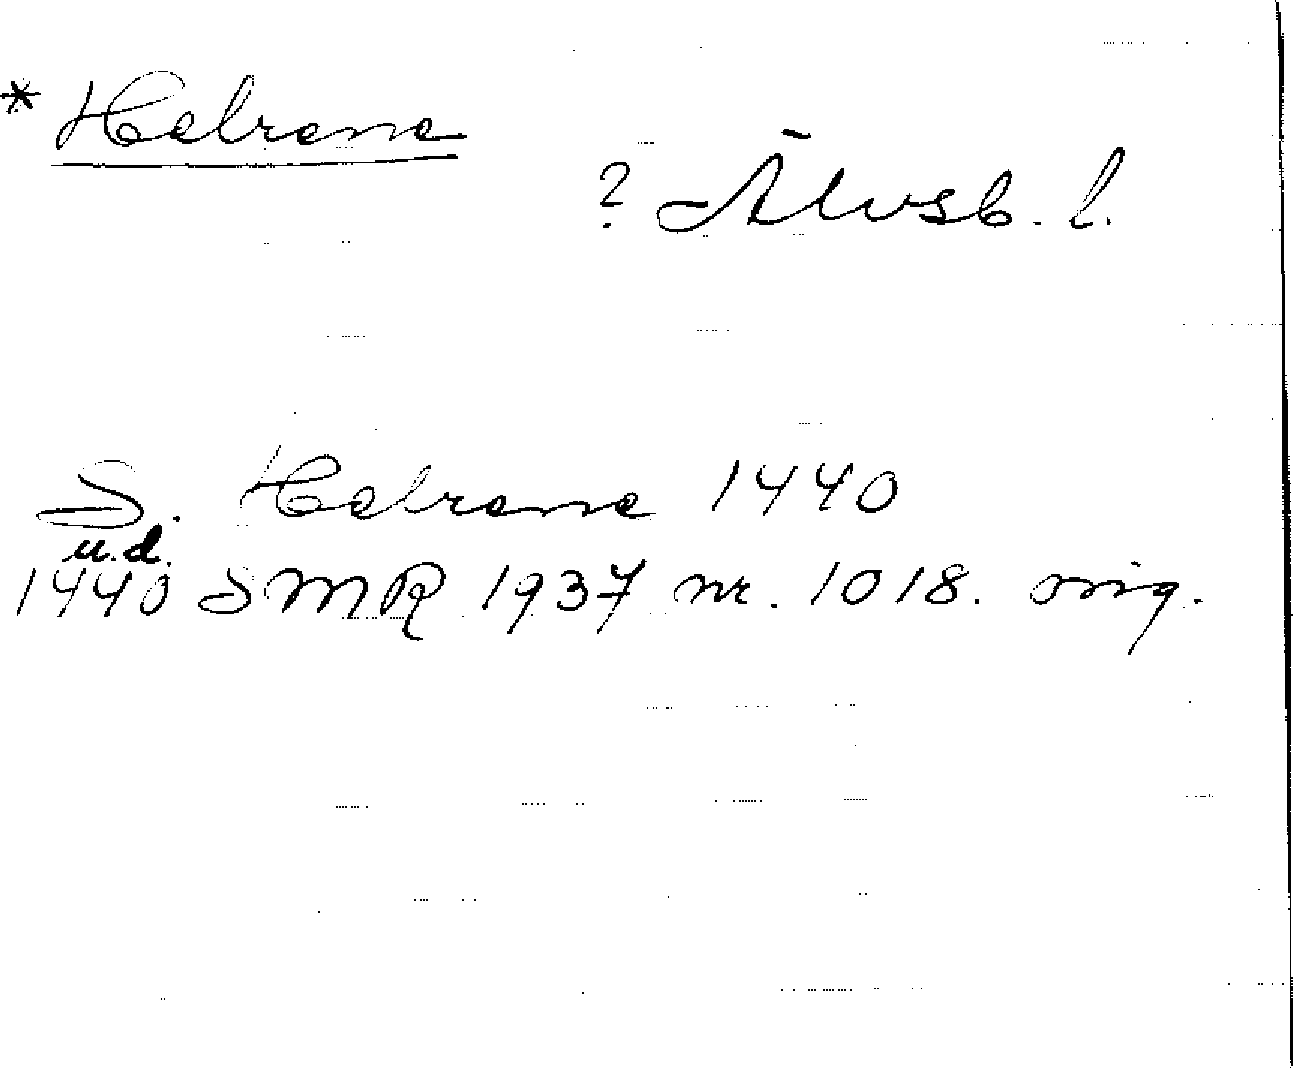 * Halrana
? Älvsb. l.
S. Halrana 1440
u.d.
1440 SMR 1937 nr. 1018. orig.